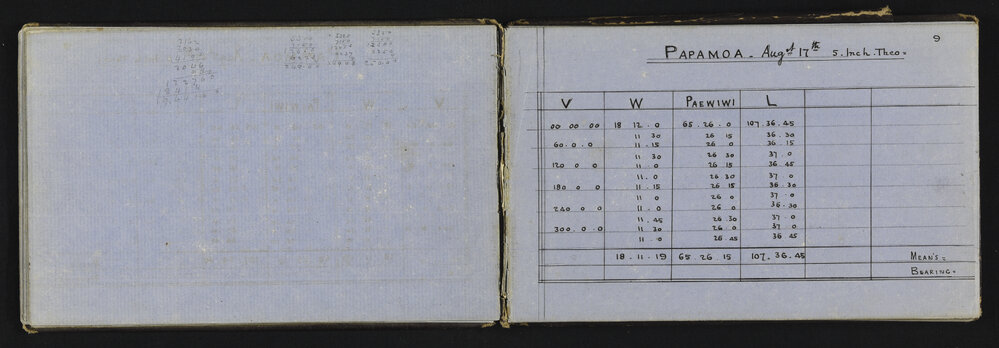 9
PAPAMOA. Augst 17th 5. Inch. Theo.
V W PAEWIWI L
00 00 00 18 12. 0 65. 26. 0 107. 36. 45
11 30 26 15 36. 30
60. 0. 0 11. 15 26 0 36. 15
11 30 26 30 37 0
120 0 0 11. 0 26 15 36. 45
11. 0 26 30 37 0
180 0 0 11. 15 26 15 36. 30
11 0 26 0 37 0
240 0 0 11. 0 26 0 36. 30
11. 45 26 30 37. 0
300. 0. 0 11 30 26. 0 37. 0
11. 0 26. 45 36 45
18. 11. 19 65 26. 15 107. 36. 45 MEAN'S.
BEARING.